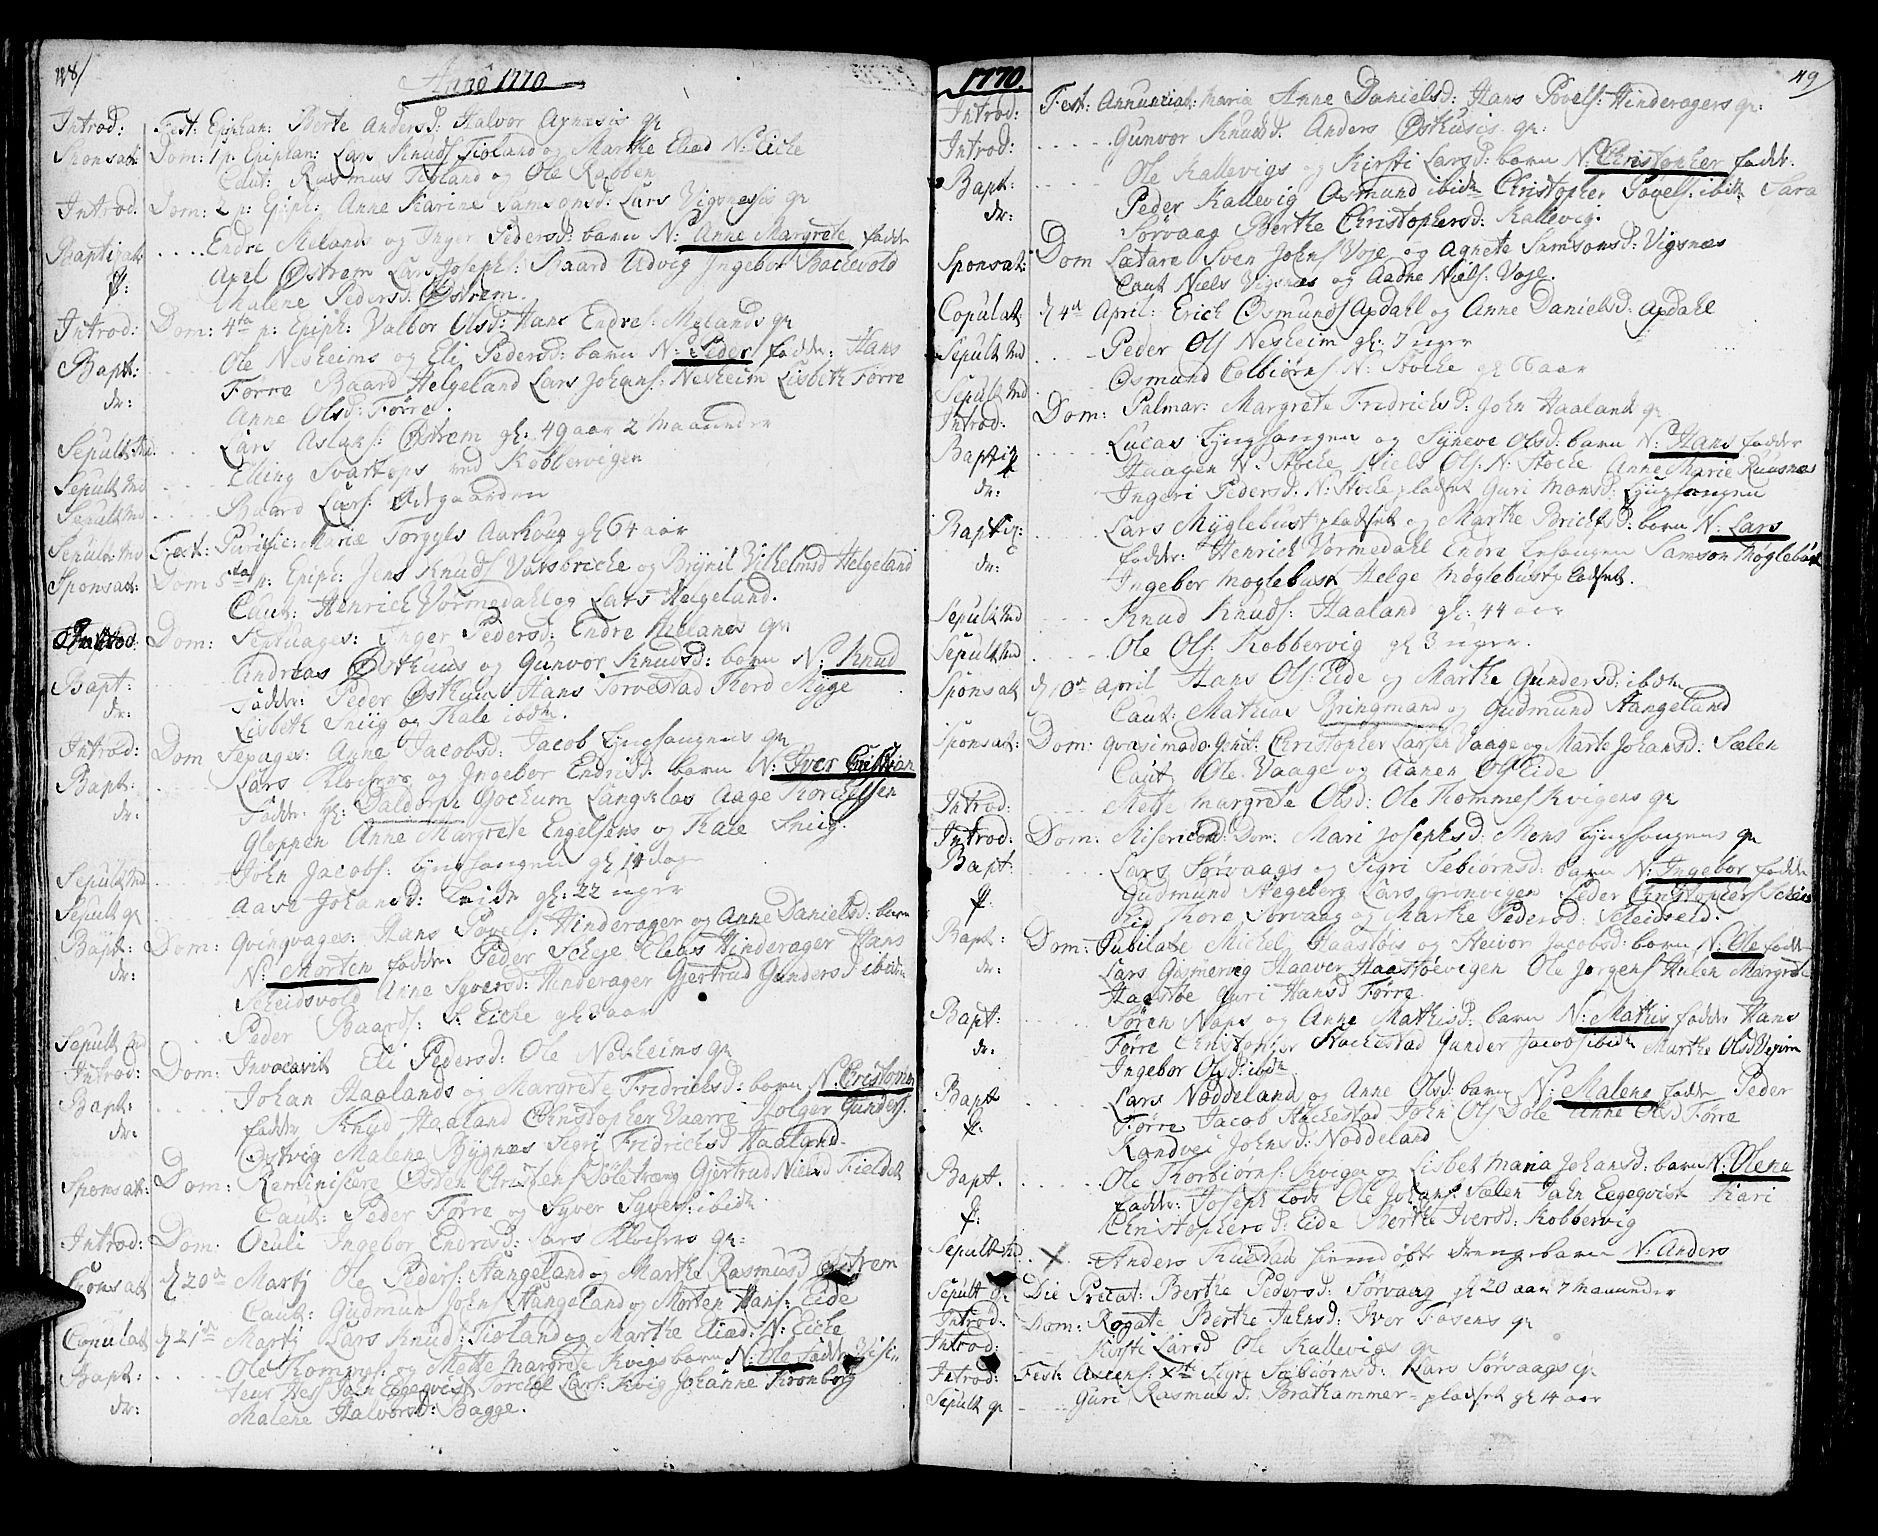 Anno 1770
Introd: Fest: Epiphan: Berte Anders d: Halvor qr
Sponsat: Dom: 1 p: Epiphan: Lars Knuds Tioland og Marthe Eliæd N: Eiche
Caut: Rasmus Tioland og Ole Rabben
Introd: Dom: 2 p: Epiph: Anne Karine Samsonsd: Lars Vignesis qr
Baptizat: ..... Endre og Inger Pedersd: barn N: Anne Margrete fadde
ff: Axel Østrem Lars Josephs: Baard Udvig Ingebor Bachevold
Malene Pedersd: Østrem.
Introd: Dom: 4te p: Epiph: Valbor Olsd: Hans Endres: Mælands qr
Bapt: Ole Nesheims og Eli Pedersd: barn N: Peder fadde: Hans
dr: Førre Baard Helgeland Lars Johans: Nesheim Lisbeth Førre
Anne Olsd: Førre.
Sepult Md: .... Lars Aslaks: Østrem gl: 49 aar 2 Maaneder
Sepult Md ..... Elling Svartops ved Kobbervigen
Sepult Md ..... Baard Lars:
Sepult: Md Fest: Purific: Mariæ Torgyls Aarhoug gl 64 aar
Sponsat: Dom 5ta p: Epiph: Jens Knuds Varsbriche og Brynil Vilhelmsd Helgeland
Caut: Henrich Vormedahl og Lars Helgeland.
Introd: Dom: Septuages: Inger Pedersd: Endre Mælands qr
Bapt: Andreas Østhuus og Gunvor Knudsd: barn N: Knud
dr: Fadde: Peder Østhuus Hans Torvestad Thord Mygge
Lisbeth Sniig og Kale ibdm.
Introd: Dom Sexages: Anne Jacobsd: Jacob Lyngsangens qr
Bapt: ..... Lars Klochers og Ingebor Endrisd: barn N: Iver Cristian
dr: Fadde: hr: Daldorph Jochum Langslos Aage Thorchelsen
Gloppen Anne Margrete Engelsens og Kale Sniig.
Sepult Md ..... John Jacobs: Lyngsangen gl 14 dage
Sepult qr ..... Aase Johansd: gl: 22 uger
Bapt: Dom: Qvinqvages: Hans Povels: Hinderager og Anne Danielsd: barn
dr: N: Morten fadde: Peder Schye Elias Hinderager Hans
Scheidsvold Anne Syversd: Hinderager Giertrud Gundersd ibdm
Sepult Md . Peder Baards: S: Eiche gl 3 aar
Introd: Dom: Invocavit Eli Pedersd: Ole Nesheims qr
Bapt: . Johan Haalands og Margrete Fredrichsd: barn N: Cristopher
dr: fadde Knud Haaland Christopher Vaarre Holger Gunders.
Østvig Malene Bygnes Sigri Fridrichsd Haaland.
Sponsat: Dom: Reminiscere Osten Christens og Giertrud Nielsd Fieldet
Caut: Peder Førre og Syver Syvers: ibdm
Introd: Dom: Oculi Ingebor Endresd: Lars Klochers qr:
Sponsat d 20de Martj Ole Peders: Hangeland og Marthe Rasmusd Østrem
Caut: Gudmun Johns Hangeland og Morten Hans: Eide
Copulat d 21de Martj Lars Knuds: Tioland og Marthe Eliæd: N: Eiche
Bapt: ..... Ole Thommes: og Mette Margrete Kvigs barn N: Ole fadde Visi-
dr: teur Hess John Eegeqvist Torchel Lars: Kvig Johanne Kronborg
Malene Halvorsd: Bagge.
1770. 49
Introd: Fest: Annunciat: Mariæ Anne Danielsd: Hans Povels: Hinderagers qr:
Introd: ..... Gunvor Knudsd. Anders Østhusis qr:
Bapt: ..... Ole Kallevigs og Kirsti Larsd: barn N: Christopher fadde:
dr: Peder Kallevig Osmund ibidm Christopher Povels: ibid: Sara
Sørvaag Berthe Christophersd: Kallevig.
Sponsat: Dom Lætare Sven Johns Voje og Agnete Samsonsd: Vigsnæs
Caut Niels Vigsnæs og Aadne Niels: Voje.
Copulat d 4de April: Erich Osmunds Apdahl og Anne Danielsd: Apdahl
Sepult Md ..... Peder Ols Nesheim gl: 7 uger
Sepult Md . Osmund Colbiørns N: Stoche gl 66 aar
Introd: Dom: Palmar: Margrete Fredrichsd: John Haaland qr
Baptiz ..... Lucas Lyngsangen og Syneve Olsd: barn N: Hans fadder
dr: Haagen N: Stoche Niels Ols: N: Stoche Anne Marie Ruusnæs
Ingeri Pedersd: N: Stoche pladset Guri Monsd: Lyngsangen
Baptiz: ..... Lars Myglebust pladset og Marthe Brichtsd: barn N: Lars
dr: fadde: Henrich Vormedahl Endre Samson Møglebust
Ingebor Møglebust Helge Møglebust pladset.
Sepult Md .... Knud Knuds: Haaland gl: 44 aar
Sepult Md ..... Ole Ols: Kobbervig gl 3 uger.
Sponsat d 10de April Hans Ols: Eide og Marthe Gundersd: ibdm
Caut: Mathias Bringmand og Gudmund Hangeland
Sponsat: Dom: Qvasimodogenit: Christopher Larsen Vaage og Marte Johansd: Sælen
Caut Ole Vaage og Aanen Ols Eide
Introd: .... Mette Margrete Olsd: Ole Thommes Kvigens qr
Introd: Dom: Misericord: Dom: Mari Josephsd: Mons Lyngsangens qr
Bapt: ..... Lars Sørvaags og Sigri Sebiørnsd: barn N: Ingebor fadde
ff: Gudmund Hegeberg Lars Grønvigen Peder Christophers Scheis
Eid Thore Sørvaag og Marthe Pedersd: Scheidseid.
Bapt: Dom: Jubilate Michel Haastøis og Heivor Jacobsd: barn N: Ole fadde
dr: Lars Gismervig Haaver Haastøevigen Ole Jørgens Hulen Margrete
Haastøe Guri Hansd Førre
Bapt: ..... Søren Naps og Anne Mathisd: barn N: Mathis fadde Hans
dr: Førre Christopher Stochestad Gunder Jacobs ibdm Marthe Olsd
Ingebor Olsd: ibdm
Bapt ..... Lars Noddeland og Anne Olsd: barn N: Malene fadde Peder
ff: Førre Jacob Stochestad John Ols Anne Olsd Førre
Randvei Johnsd: Noddeland
Bapt. ..... Ole Thorbiørns: Kvigen og Lisbet Maria Johansd: barn N: Olene
ff: Fadde: Joseph Ole Johans: Sælen John Eegeqvist Kari
Christophersd: Eide Berthe Iversd: Kobbervig
Sepult Md . X .. Anders hiemdøbte drengebarn N: Anders
Sepult qr Die Precat: Berthe Pedersd: Sørvaag gl 20 aar 7 Maaneder
Introd: Dom: Rogate Berthe Johnsd: Iver Fosens qr
Introd: .... Kirsti Larsd Ole Kallevigs qr
Introd: Fest: Ascens: Xti Sigri Sebiørnsd: Lars Sørvaags qr
Sepult qr .... Guri Rasmusd: Brathammer-pladset gl 14 aar